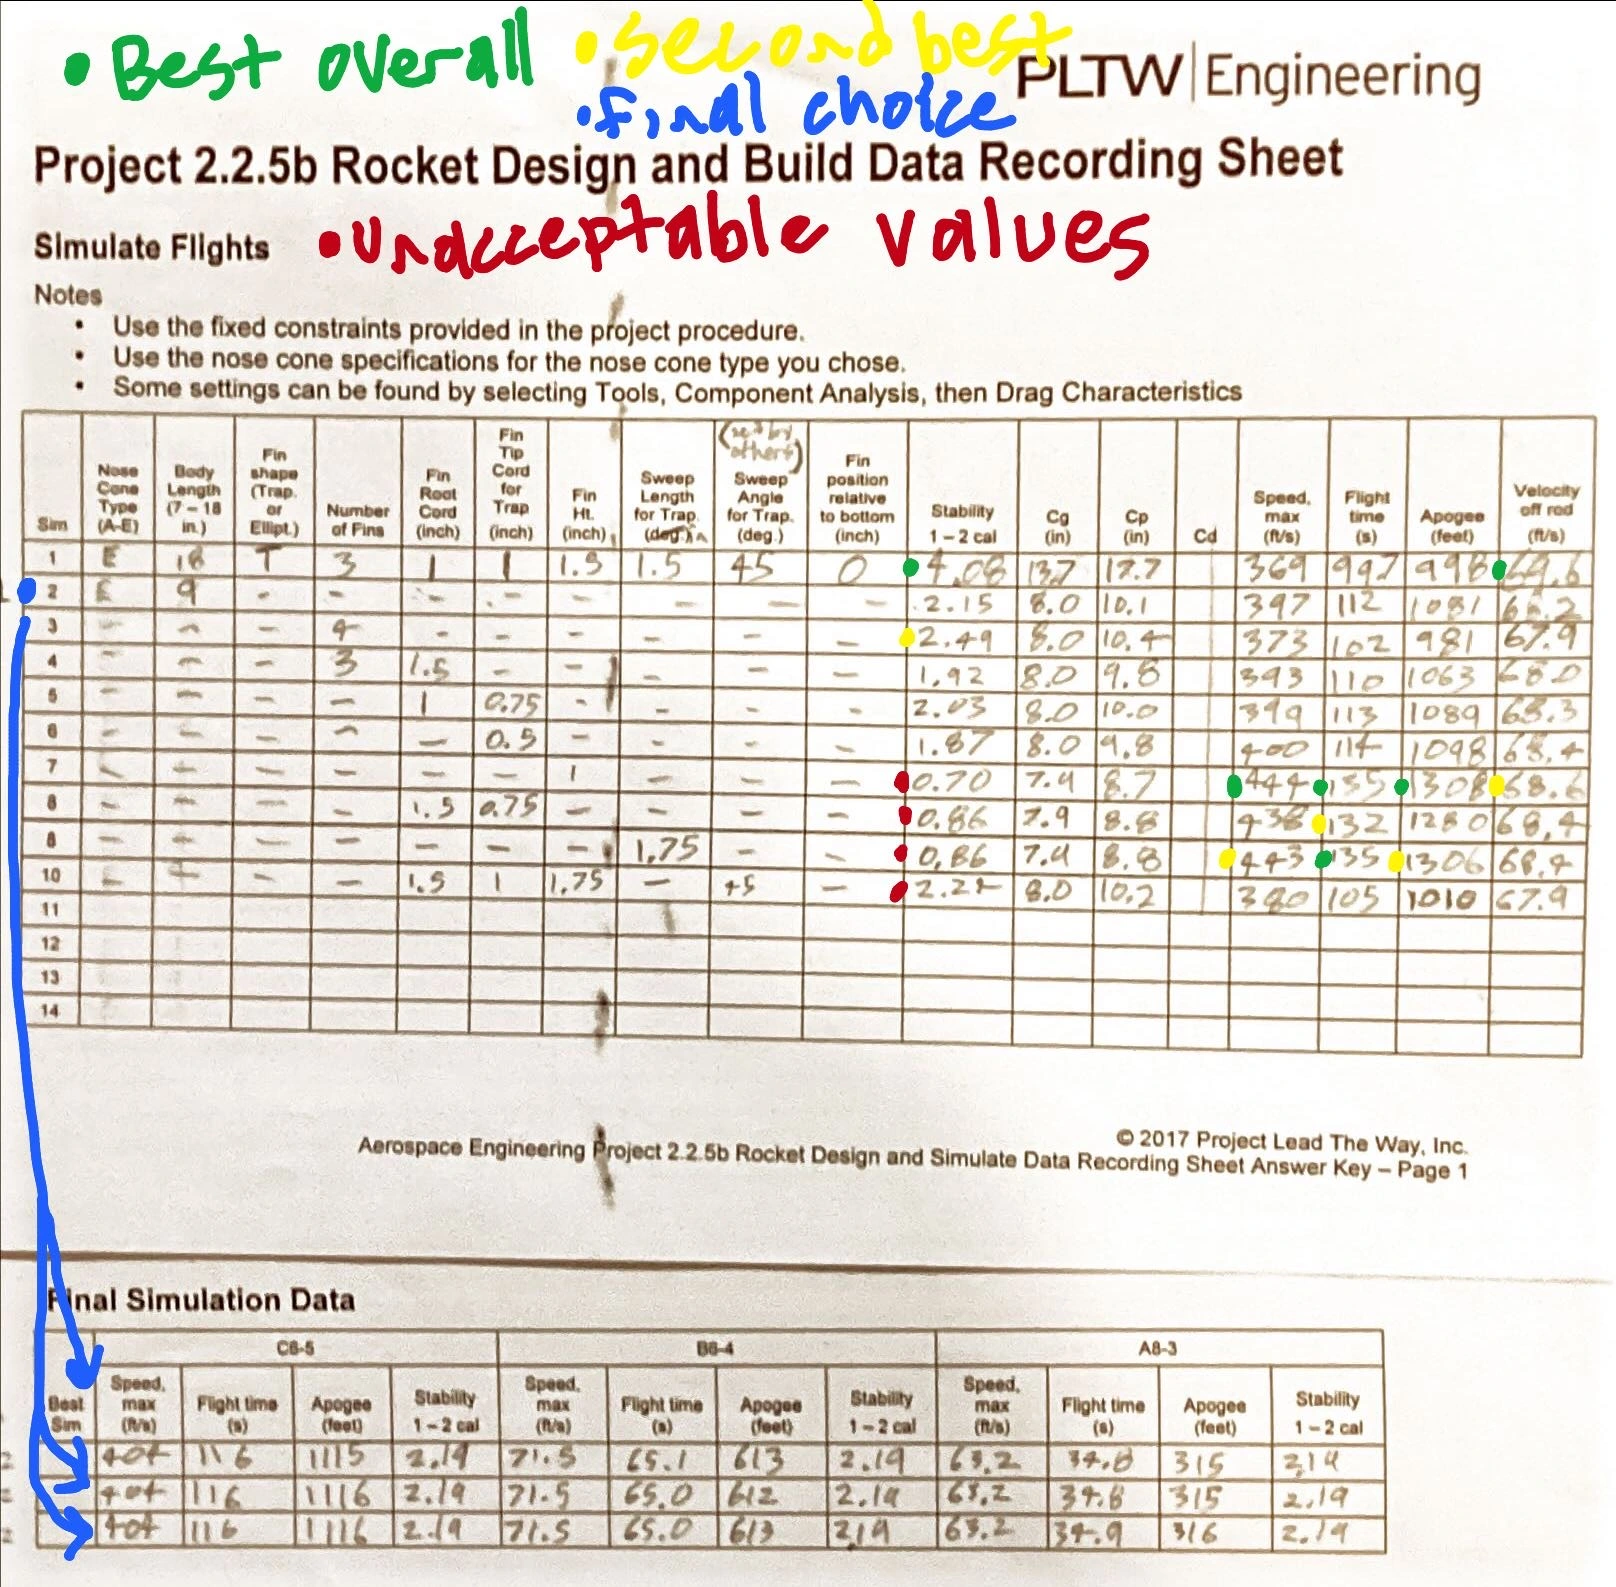 • Best overall • second best
PLTW | Engineering
• final choice
Project 2.2.5b Rocket Design and Build Data Recording Sheet
• Unacceptable values
Simulate Flights
Notes
• Use the fixed constraints provided in the project procedure.
• Use the nose cone specifications for the nose cone type you chose.
• Some settings can be found by selecting Tools, Component Analysis, then Drag Characteristics
Sim | Nose Cone Type (A-E) | Body Length (7 – 18 in.) | Fin shape (Trap. or Ellipt.) | Number of Fins | Fin Root Cord (inch) | Fin Tip Cord for Trap (inch) | Fin Ht. (inch) | Sweep Length for Trap. (deg.) | Sweep Angle for Trap. (deg.) | Fin position relative to bottom (inch) | Stability 1 – 2 cal | Cg (in) | Cp (in) | Cd | Speed, max (ft/s) | Flight time (s) | Apogee (feet) | Velocity off rod (ft/s)
1 E 18 T 3 1 1 1.5 1.5 45 0 4.08 13.7 17.7 369 997 998 69.6
2 E 9 - - - - - - - - 2.15 8.0 10.1 397 112 1081
3 - - - 4 - - - - - - 2.49 8.0 10.4 373 102 981 67.9
4 - - - 3 1.5 - - - - 1.92 8.0 9.8 393 110 1063 68.0
5 - - - - 1 0.75 - - - - 2.03 8.0 10.0 399 113 1089 68.3
6 - - - - - 0.5 - - - - 1.87 8.0 9.8 400 114 1098 68.4
7 - - - - - - 1 - - 0.70 7.9 8.7 444 135 1308 68.6
8 - - - - 1.5 0.75 - - - - 0.86 7.9 8.8 438 132 1280 68.4
8 - - - - - - - 1.75 - - 0.86 7.9 8.8 443 135 1306 68.4
10 - - - - 1.5 1 1.75 - 45 - 2.24 8.0 10.2 380 105 1010 67.9
11
12
13
14
© 2017 Project Lead The Way, Inc.
Aerospace Engineering Project 2.2.5b Rocket Design and Simulate Data Recording Sheet Answer Key – Page 1
Final Simulation Data
C6-5 B6-4 A8-3
Best Sim | Speed, max (ft/s) | Flight time (s) | Apogee (feet) | Stability 1 – 2 cal | Speed, max (ft/s) | Flight time (s) | Apogee (feet) | Stability 1 – 2 cal | Speed, max (ft/s) | Flight time (s) | Apogee (feet) | Stability 1 – 2 cal
2 404 116 1115 2.19 71.5 65.1 613 2.19 63.2 34.8 315 2.19
2 404 116 1116 2.19 71.5 65.0 612 2.19 63.2 34.8 315 2.19
2 404 116 1116 2.19 71.5 65.0 613 2.19 63.2 34.9 316 2.19